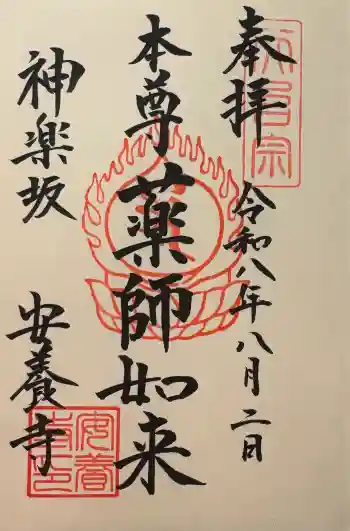 奉拝
令和八年八月二日
本尊薬師如来
神楽坂
安養寺